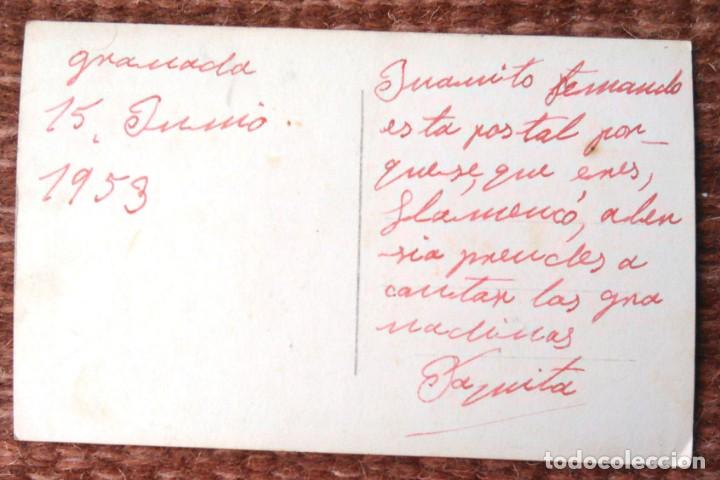 granada
15. Junio.
1953
Juanito temando
esta postal por
quese, que eres,
flamencó, aber
sia prendes a
cantar las gra
nadinas
Paquita
todocoleccion.net